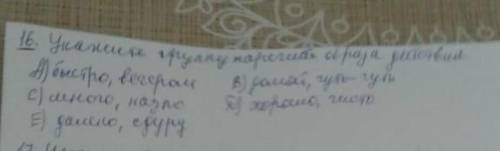 16. Укажите группу наречий образа действия
A) быстро, вечером B) домой, чуть-чуть
C) много, назло D) хорошо, чисто
E) далеко, сдуру